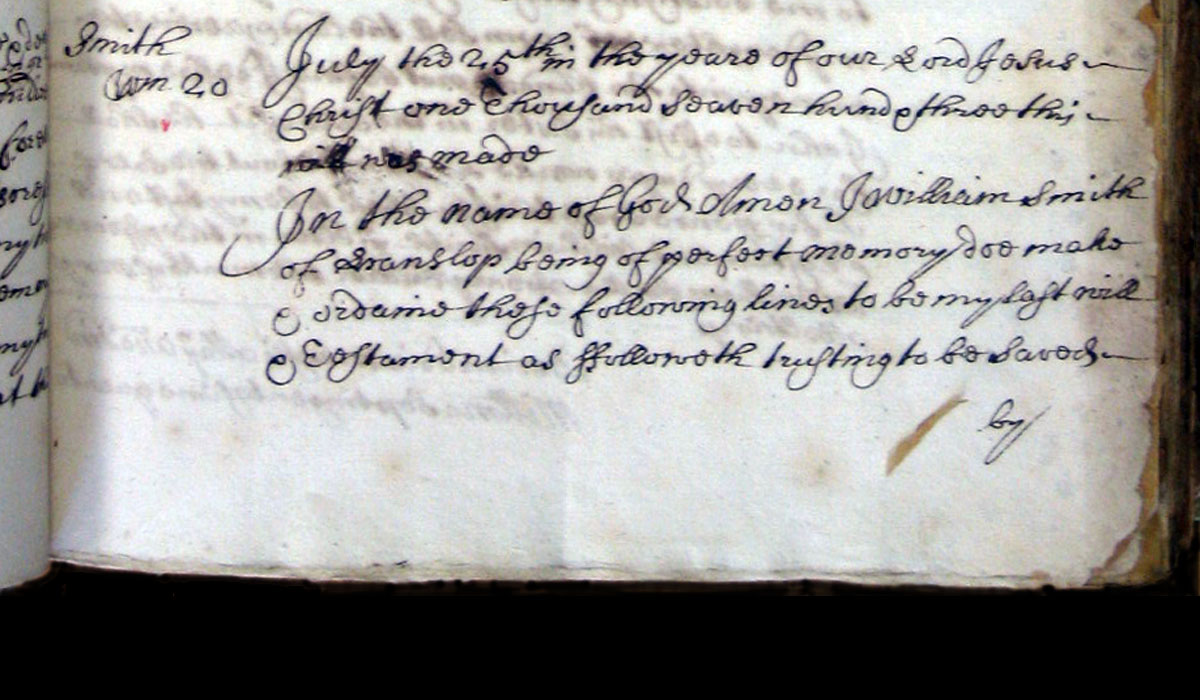 Smith
Wm 20
July the 25th in the yeare of our Lord Jesus
Christ one thousand seaven hund & three this
will was made
In the name of God Amen I William Smith
of Hanslop being of perfect memory doe make
& ordaine these following lines to be my last will
& Testament as ffolloweth trusting to be saved
by